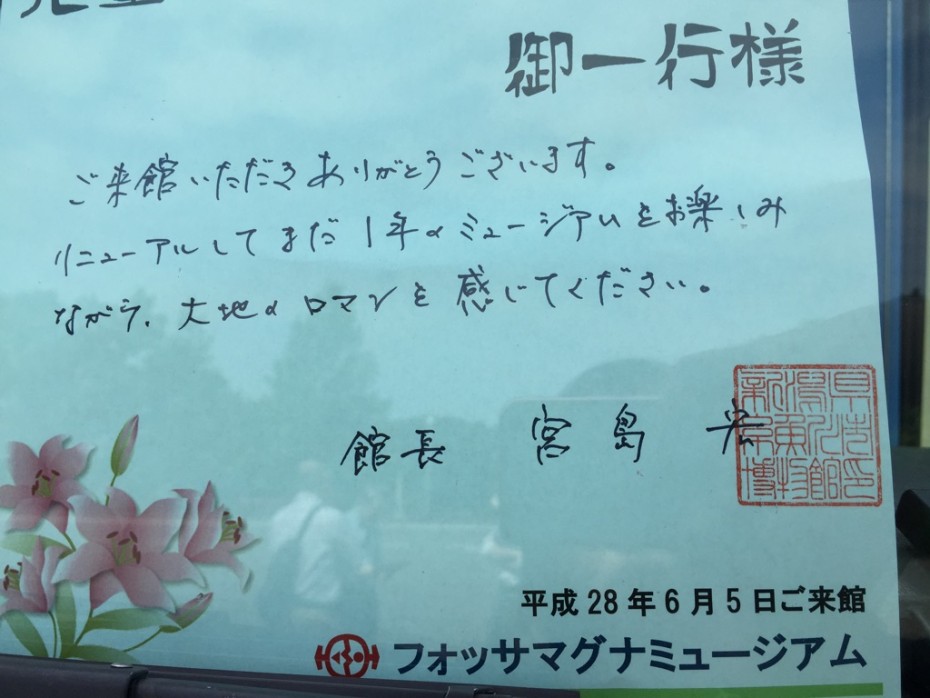 御一行様
ご来館いただきありがとうございます。
リニューアルしてまだ1年のミュージアムをお楽しみ
ながら、大地のロマンを感じてください。
館長 宮島 宏
平成28年6月5日ご来館
フォッサマグナミュージアム